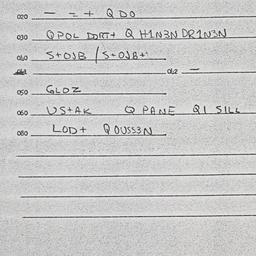 020 — = + Q DO
030 Q POL DORT+ Q H1N3N DR1N3N
040 S+OJB / S+OJB+1
042 —
050 GLOZ
060 US+AK Q PANE QI SILL
080 LOD+ Q OUSS3N